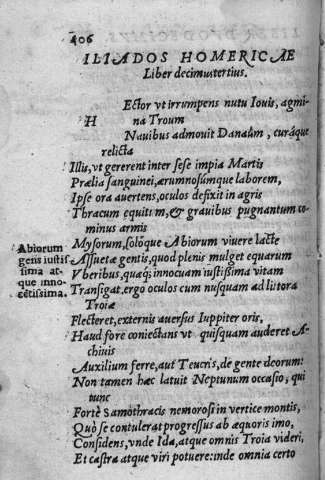 406
ILIADOS HOMERICAE
Liber decimustertius.
HEctor vt irrumpens nutu Iouis, agmi
na Troum
Nauibus admouit Danaûm, curáque
relicta
Illis, vt gererent inter sese impia Martis
Prælia sanguinei, ærumnosúmque laborem,
Ipse ora auertens, oculos defixit in agris
Thracum equitum, & grauibus pugnantum co-
minus armis
Mysorum, soloque Abiorum viuere lacte
Assuetæ gentis, quod plenis mulget equarum
Vberibus, quæq; innocuam iustissima vitam
Transigat. ergo oculos cum nusquam ad littora
Troiæ
Flecteret, externis auersus Iuppiter oris,
Haud fore coniectans vt quisquam auderet A-
chiuis
Auxilium ferre, aut Teucris, de gente deorum:
Non tamen hæc latuit Neptunum occasio, qui
tunc
Fortè Samothracis nemorosi in vertice montis,
Quò se contulerat progressus ab æquoris imo,
Considens, vnde Ida, atque omnis Troia videri,
Et castra atque viri potuere: inde omnia certo
Abiorum
gens iustis
sima at-
que inno-
cẽtissima.